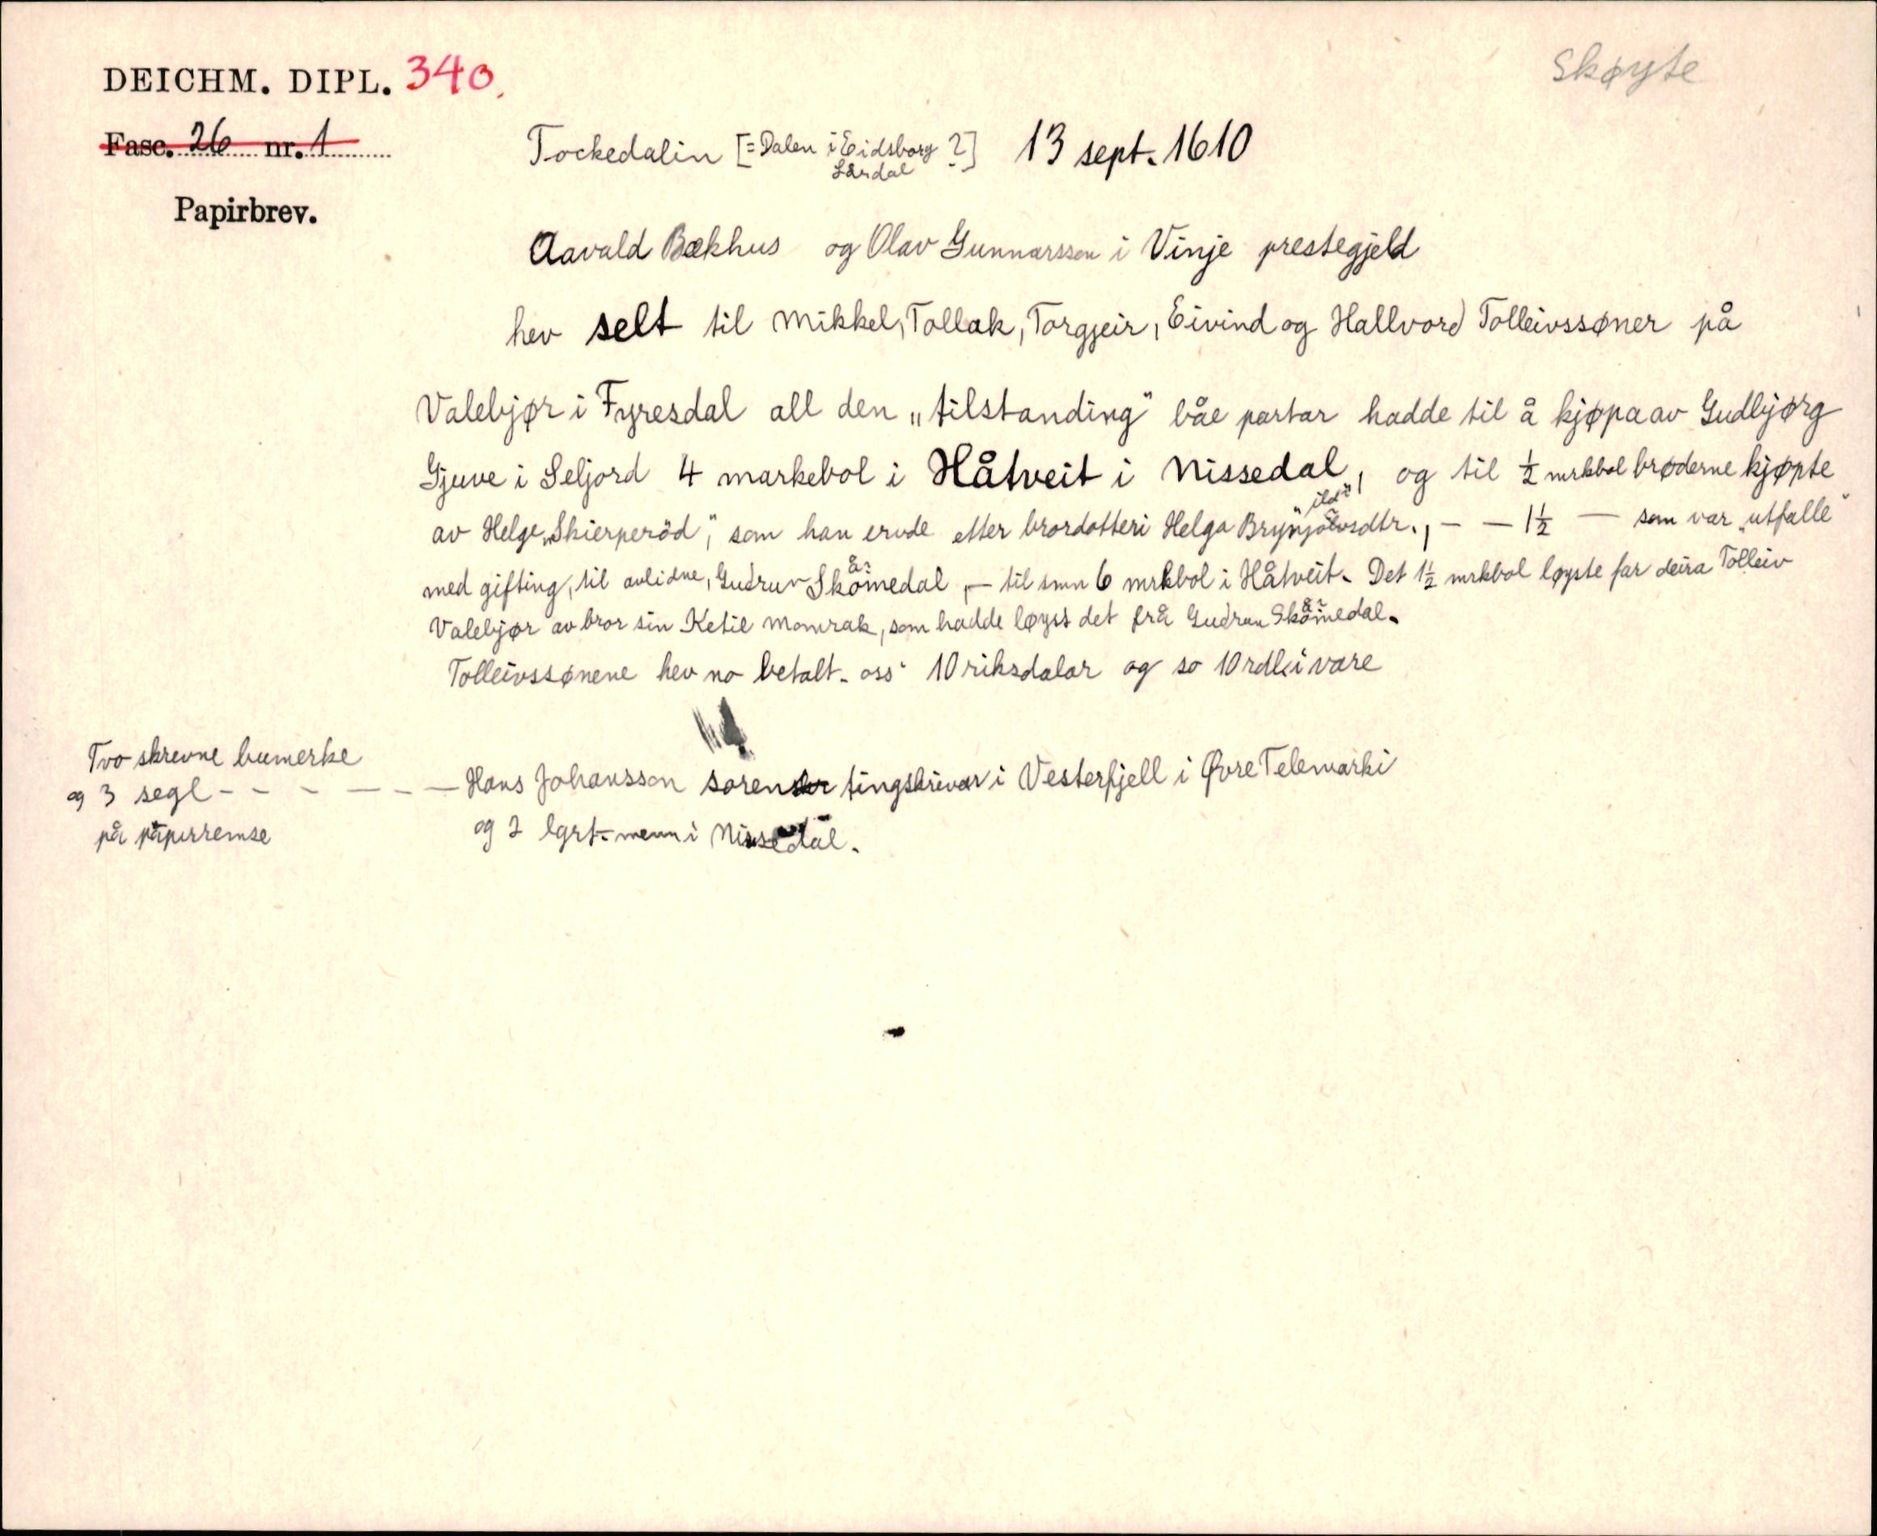 DEICHM. DIPL. 340.
Skøyte
Fasc. 26 nr. 1
Tockedalin [=Dalen i Eidsborg ?] 13 sept. 1610
Lårdal
Papirbrev.
Aavald Bækhus og Olav Gunnarsson i Vinje prestegjeld
hev selt til Mikkel, Tollak, Torgjeir, Eivind og Hallvord Tolleivssøner på
Valebjør i Fyresdal all den „tilstanding" båe partar hadde til å kjøpa av Gudbjørg
Gjuve i Seljord 4 markebol i Håtveit i Nissedal, og til ½ mrkbol brøderne kjøpte
av Helge „Skierperöd", som han ervde etter brordotteri Helga Brynjolvsdtr., – — 1½ — som var „utfalle"
med gifting, til avlidne, Gudrun Skåmedal, – til smn 6 mrkbol i Håtveit. Det 1½ mrkbol løyste far deira Tolleiv
Valebjør av bror sin Ketil Momrak, som hadde løyst det frå Gudrun Skåmedal.
Tolleivssønene hev no betalt oss 10 riksdalar og so 10 rdl. i vare
Tvo skrevne bumerke
og 3 segl - - - - - — Hans Johansson soren tingskrivar i Vesterfjell i Øvre Telemarki
på papirremse
og 2 lgrt.menn i Nissedal.